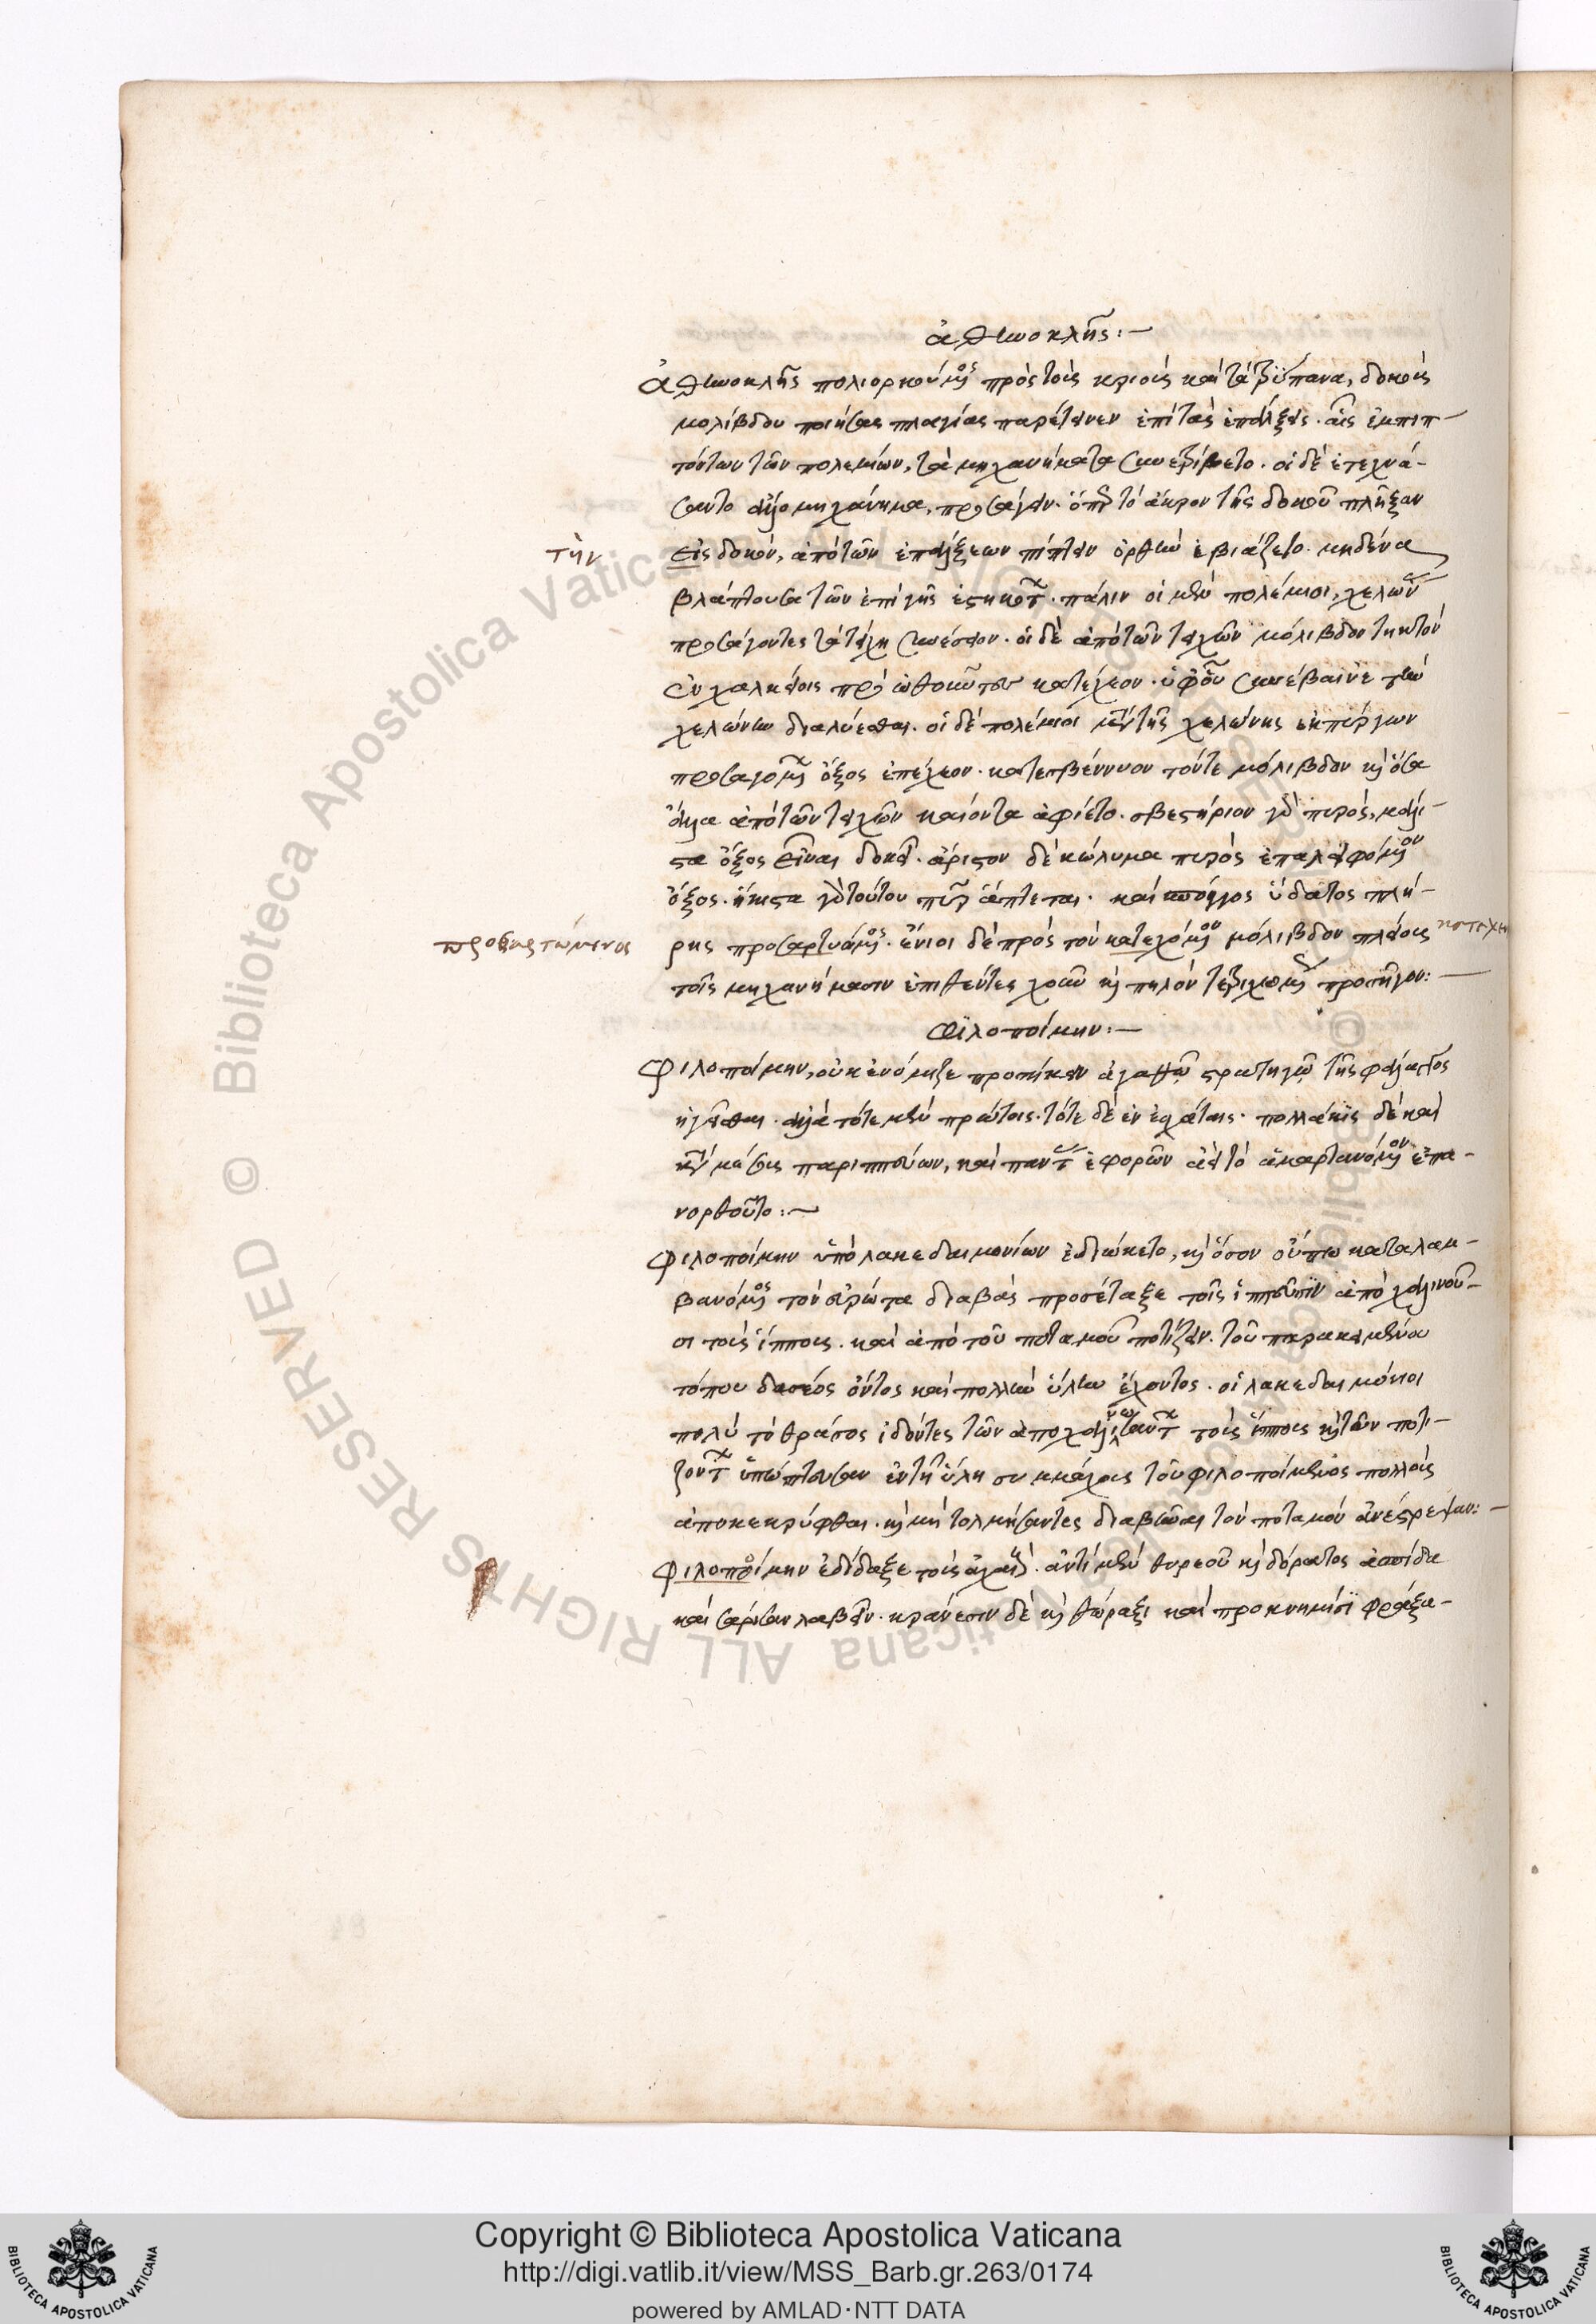 ἀθηνοκλῆς:—
Ἀθηνοκλῆς πολιορκούμενος πρὸς τοὺς κριοὺς καὶ τὰ τρύπανα, δοκοὺς
μολίβδου ποιήσας πλαγίας παρέτεινεν ἐπὶ τὰς ἐπάλξεις. αἷς ἐμπιπ-
τόντων τῶν πολεμίων, τὰ μηχανήματα συνετρίβετο. οἱ δὲ ἐτεχνά-
σαντο ἄλλο μηχάνημα, προσάγειν. ὅπερ τὸ ἄκρον τῆς δοκοῦ πλῆξαν
τὴν
εἰς δοκὸν, ἀπὸ τῶν ἐπάλξεων πίπτειν ὀρθὴν ἐβιάζετο. μηδένα
βλάπτουσα τῶν ἐπὶ γῆς ἑστηκότων. πάλιν οἱ μὲν πολέμιοι, χελώνην
προσάγοντες τὰ τείχη συνέσειον. οἱ δὲ ἀπὸ τῶν τειχῶν μόλιβδον τηκτὸν
ἐν χαλκείοις κατέχεον. ὑφ' οὗ συνέβαινε τὴν
χελώνην διαλύεσθαι. οἱ δὲ πολέμιοι μὲν τῆς χελώνης ἐκ πύργων
προσαγομένης ὄξος ἐπέχεον. κατεσβέννυον τόν τε μόλιβδον καὶ ὅσα
ἄλλα ἀπὸ τῶν τειχῶν καιόντα ἀφίετο. σβεστήριον γὰρ πυρὸς, μάλι-
στα ὄξος εἶναι δοκεῖ. ἄριστον δὲ κώλυμα πυρὸς ἐπαλειφόμενον
ὄξος. ἥκιστα γὰρ τούτου πῦρ ἅπτεται. καὶ σπόγγος ὕδατος πλή-
προσαρτώμενος
ρης προσαρτυάμενος. ἔνιοι δὲ πρὸς τὸν κατεχόμενον μόλιβδον πλείους
τοῖς μηχανήμασιν ἐπιθέντες χοῦν καὶ πηλὸν τετριχωμένον προσῆγον:—
φιλοποίμην:—
Φιλοποίμην, οὐκ ἐνόμιζε προσήκειν ἀγαθῷ στρατηγῷ τῆς φάλαγγος
ἡγεῖσθαι. ἀλλὰ τότε μὲν πρώτοις. τότε δὲ ἐν ἐσχάτοις. πολλάκις δὲ καὶ
κατὰ μέσους παριππεύων, καὶ πάντων ἐφορῶν ἀεὶ τὸ ἁμαρτανόμενον ἐπα-
νορθοῦτο:—
Φιλοποίμην ὑπὸ λακεδαιμονίων ἐδιώκετο, καὶ ὅσον οὔπω καταλαμ-
βανόμενος τὸν εὐρώτα διαβὰς προσέταξε τοῖς ἱππεῦσιν ἀποχαλινοῦ-
σι τοὺς ἵππους. καὶ ἀπὸ τοῦ ποταμοῦ ποτίζειν. τοῦ παρακειμένου
τόπου δασέος ὄντος καὶ πολλὴν ὕλην ἔχοντος. οἱ λακεδαιμόνιοι
πολὺ τὸ θράσος ἰδόντες τῶν ἀποχαλινωσάντων τοὺς ἵππους καὶ τῶν ποτι-
ζόντων ὑπώπτευσαν ἐν τῇ ὕλῃ συμμάχους τοῦ φιλοποίμενος πολλοὺς
ἀποκεκρύφθαι. καὶ μὴ τολμήσαντες διαβῆναι τὸν ποταμὸν ἀνέστρεψαν:—
Φιλοποίμην ἐδίδαξε τοὺς ἀχαιοὺς. ἀντὶ μὲν θυρεοῦ καὶ δόρατος ἀσπίδα
καὶ σάρισαν λαβεῖν. κράνεσιν δὲ καὶ θώραξι καὶ προκνημῖσι φράξα-
Copyright © Biblioteca Apostolica Vaticana
http://digi.vatlib.it/view/MSS_Barb.gr.263/0174
powered by AMLAD·NTT DATA